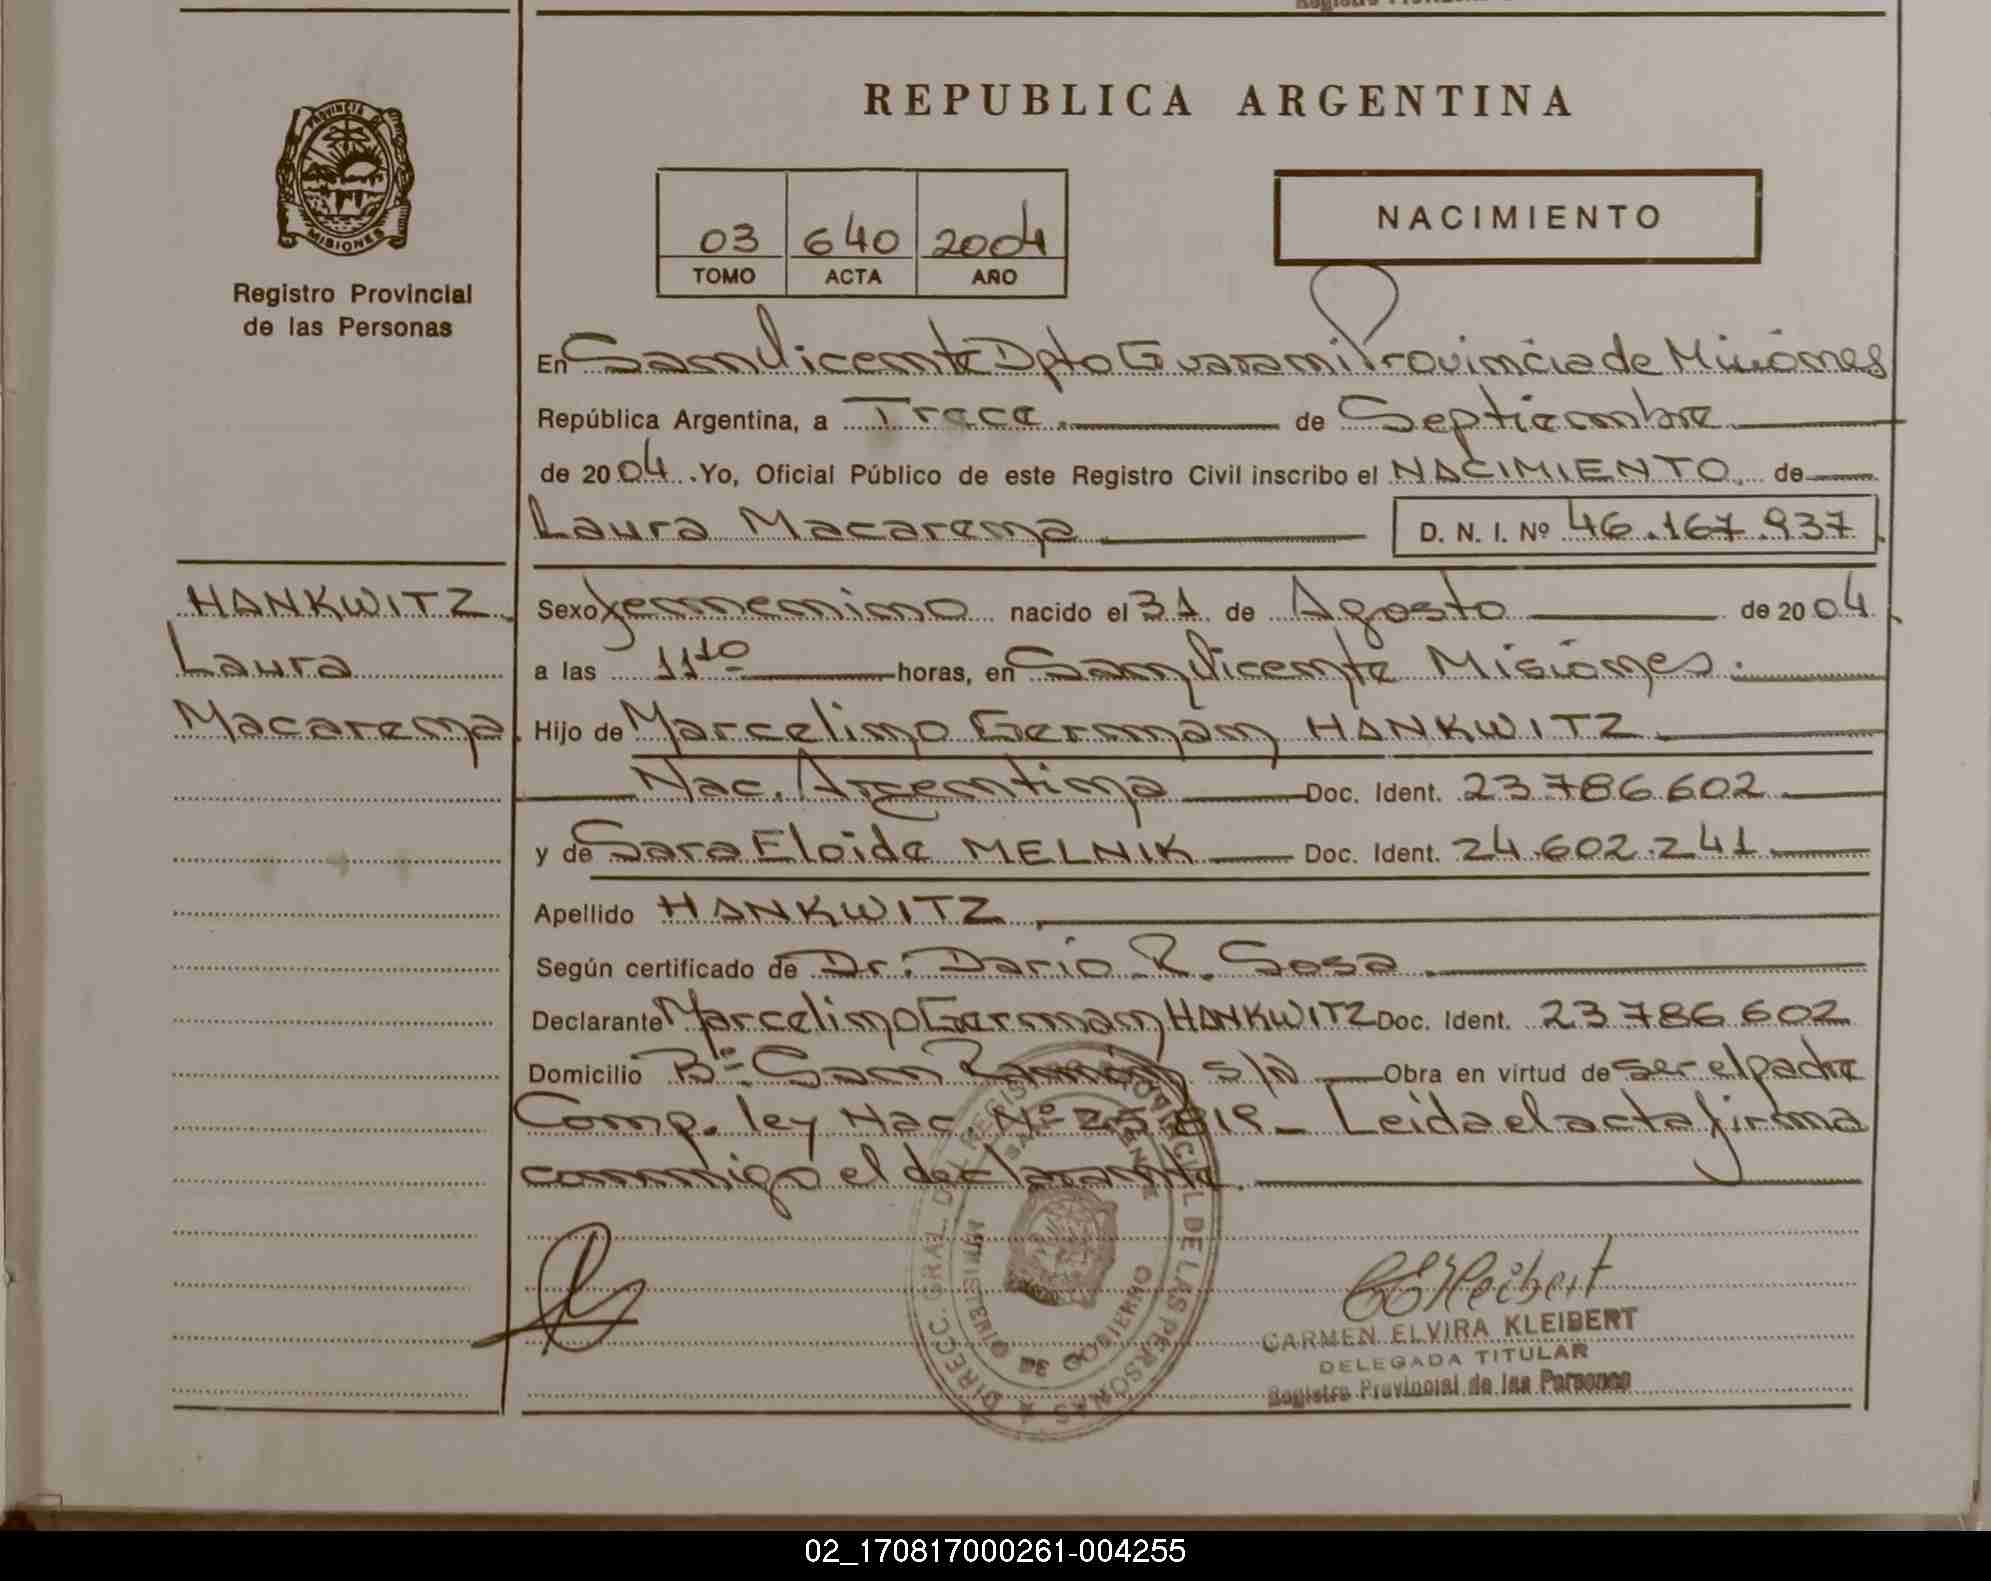 REPUBLICA ARGENTINA
PROVINCIA DE
MISIONES
Registro Provincial
de las Personas
03 640 2004
TOMO ACTA AÑO
NACIMIENTO
En San Vicente Dpto Guarani Provincia de Misiones
República Argentina, a Trece de Septiembre
de 2004. Yo, Oficial Público de este Registro Civil inscribo el NACIMIENTO de
Laura Macarena D. N. I. Nº 46.167.937
HANKWITZ
Laura
Macarena
Sexo femenino nacido el 31 de Agosto de 2004
a las 11 10 horas, en San Vicente Misiones.
Hijo de Marcelino German HANKWITZ
Nac. Argentina Doc. Ident. 23.786.602
y de Sara Eloida MELNIK Doc. Ident. 24.602.241
Apellido HANKWITZ
Según certificado de Dr. Dario R. Sosa
Declarante Marcelino German HANKWITZ Doc. Ident. 23.786.602
Domicilio Bº San Ramón s/n Obra en virtud de ser el padre
Comp. ley Nac. Nº 25.819 - Leida el acta firma
conmigo el declarante.
DIRECC. GRAL. DEL REGISTRO PROVINCIAL DE LAS PERSONAS
SAN VICENTE
MINISTERIO DE GOBIERNO
CEKleibert
CARMEN ELVIRA KLEIBERT
DELEGADA TITULAR
Registro Provincial de las Personas
02_170817000261-004255